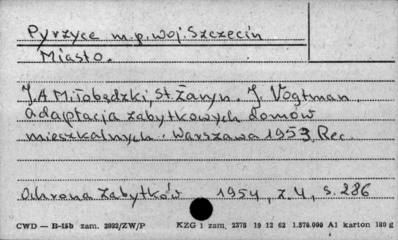 Pyrzyce m.p. woj. Szczecin
Miasto.
J.A. Miłobędzki, St. Żaryn. J. Vogtman.
adaptacja zabytkowych domów
mieszkalnych. Warszawa 1953. Rec.
Ochrona Zabytków 1954, z. 4, s. 286
CWD — B-15b zam. 2032/ZW/P KZG 1 zam. 2375 19 12 62 1.570.000 A1 karton 180 g